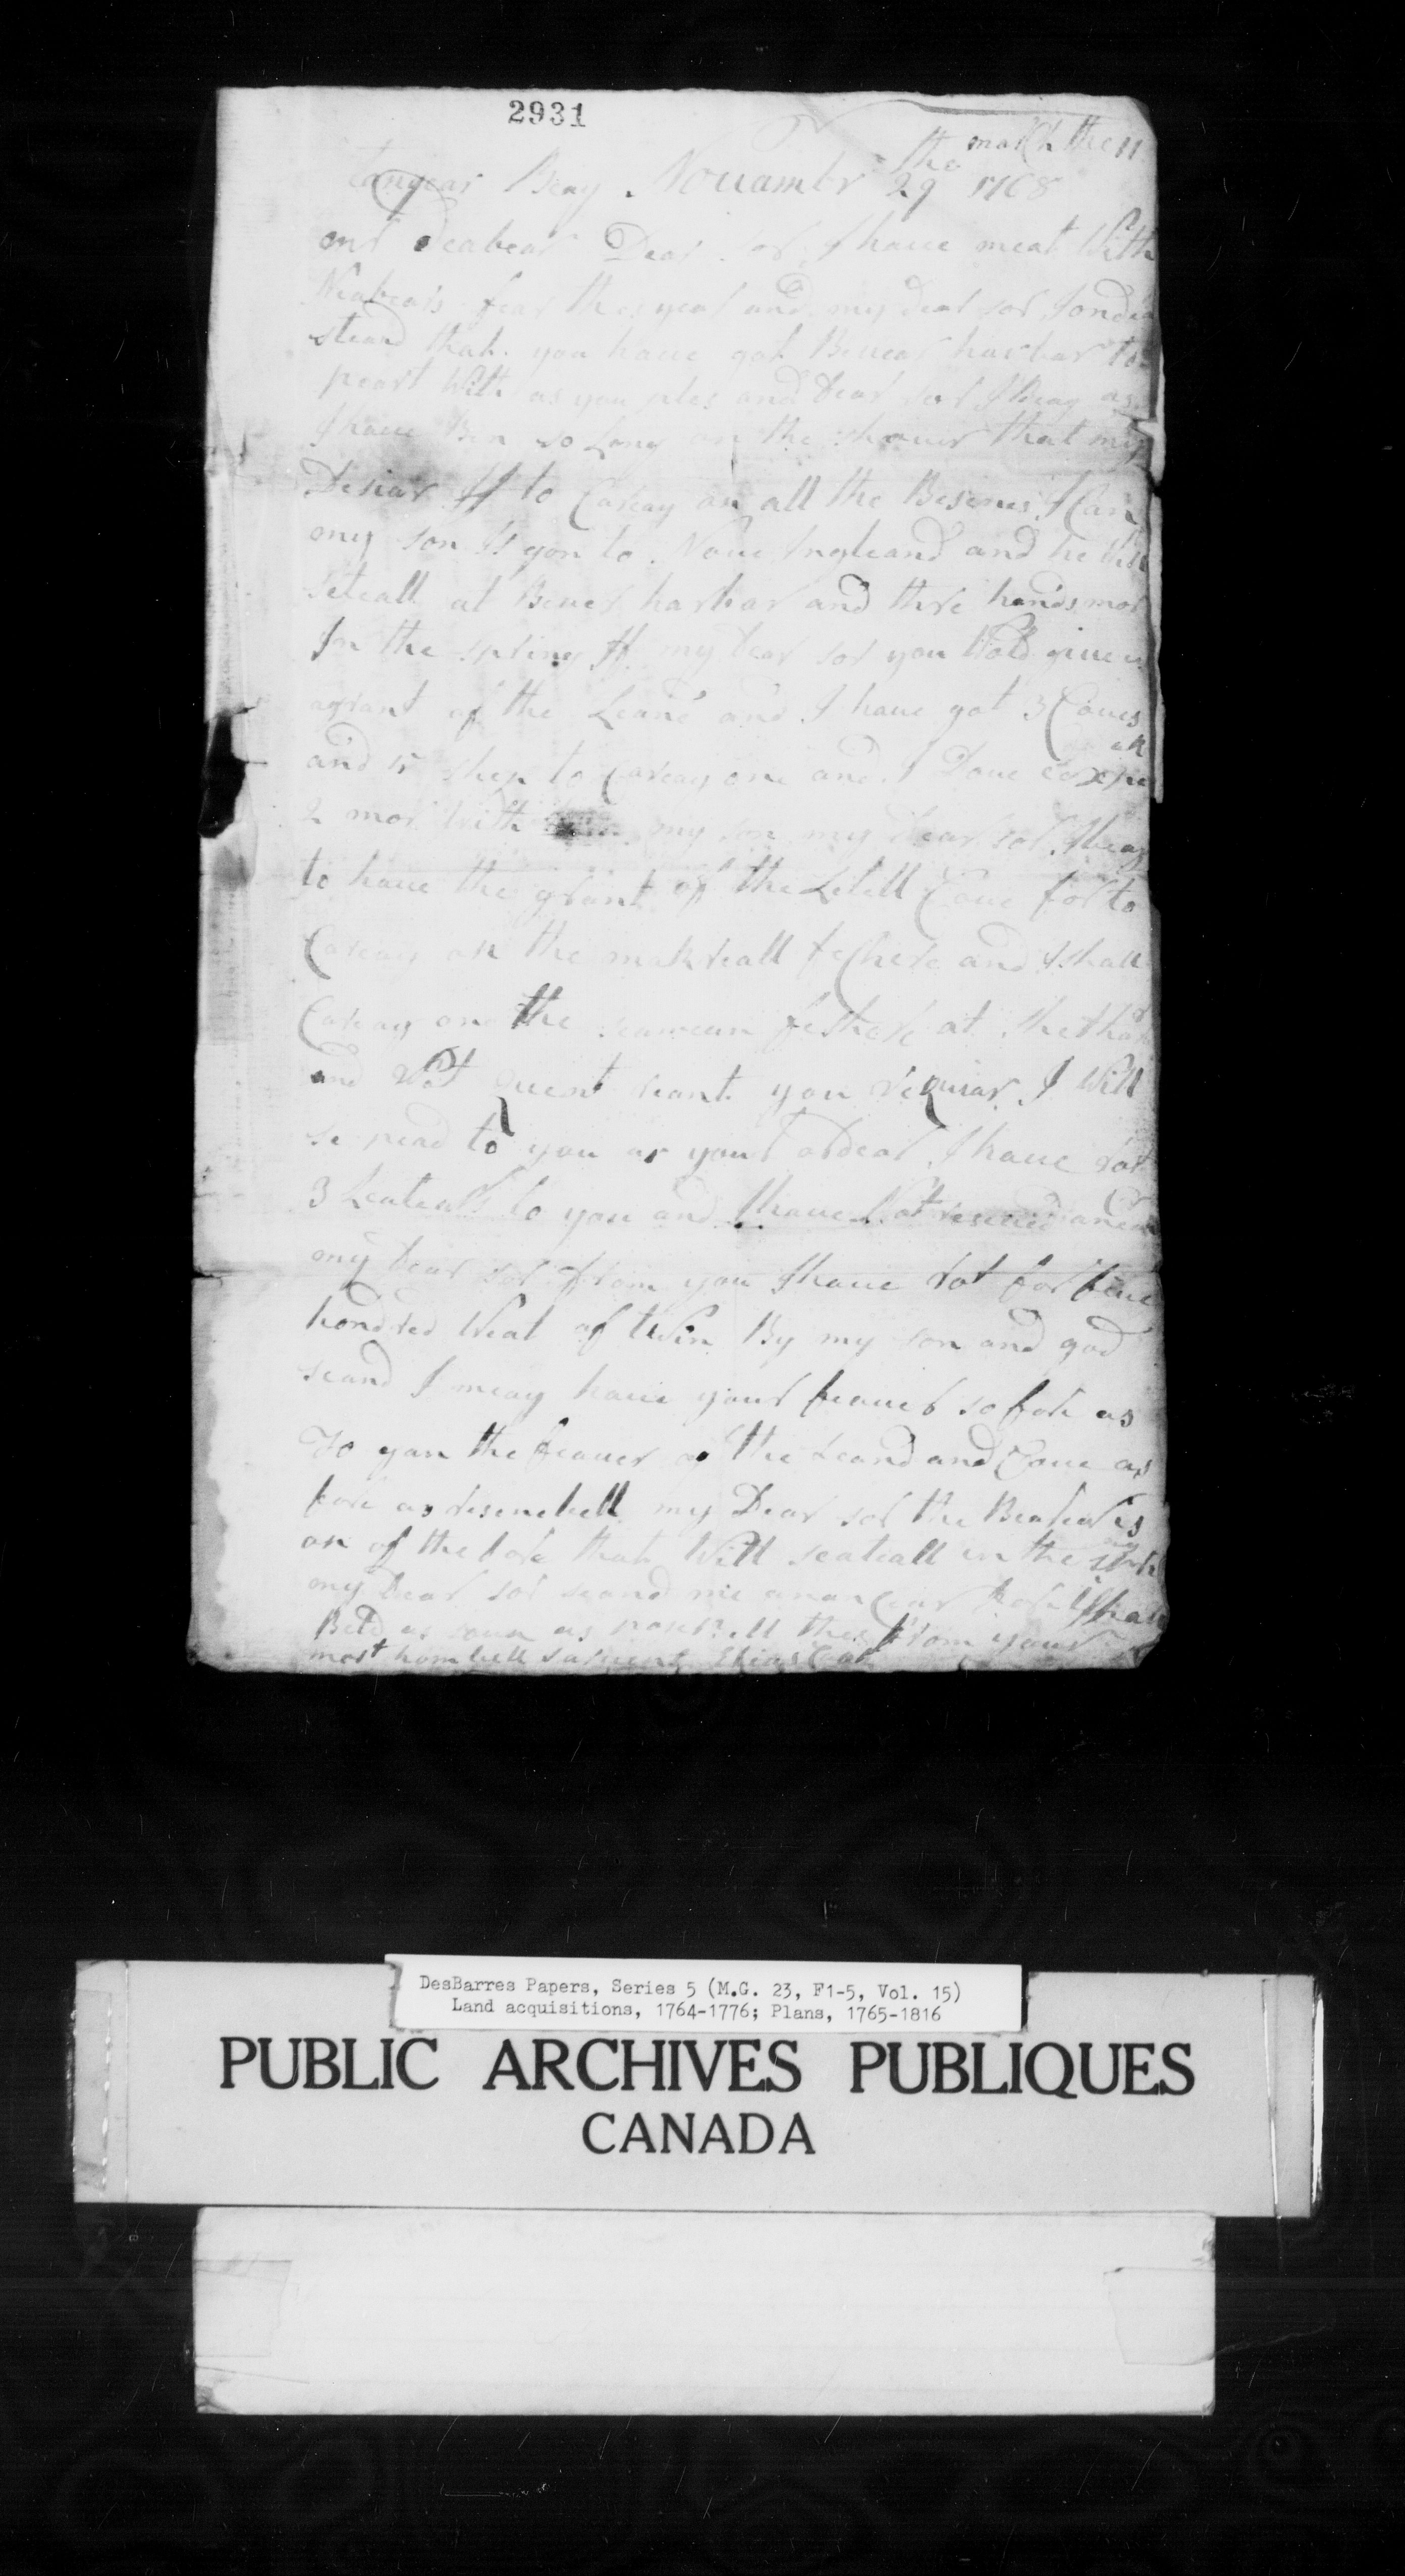 2931
march the 11
tangear Beay Nouambr the 29 1768
mr deabear Dear sor I haue meat With
Neabears fear thes year and my dear sor I onder
steand that you haue got Beuear harbar to
peart With as you ples and Dear sor I Beag as
I haue Ben so Long on the shouer that my
Desiar Is to Careay on all the Besenes I Can
my son Is gon to Noue Ingleand and he Will
seteall at Beuer harbar and thre hands mor
In the spring If my Dear sor you Wold giue us
agrant of the Leand and I haue got 3 Coues
and 15 shep to Careay one and I Doue expe
2 mor With my son my dear sor I beag
to haue the grant of the Letell Coue for to
Careay on the makreall feshere and I shall
Careay on the seamean feshere at
and Wot quent reant you requiar I Will
be pead to you as your ordear I haue rot
3 Leatears to you and I haue Not reseued
my Dear sor from you I haue rot for fiue
hondred Weat of twin By my son and god
seand I meay haue your feauer so fare as
To gan the feauer of the Leand and Coue as
fare as resenebell my Dear sor the Bearear is
on of the fore that Will seateall in the spring
my Dear sor seand me anancear
as soun as from your
most hombell saruent Elias Cok
DesBarres Papers, Series 5 (M.G. 23, F1-5, Vol. 15)
Land acquisitions, 1764-1776; Plans, 1765-1816
PUBLIC ARCHIVES PUBLIQUES
CANADA